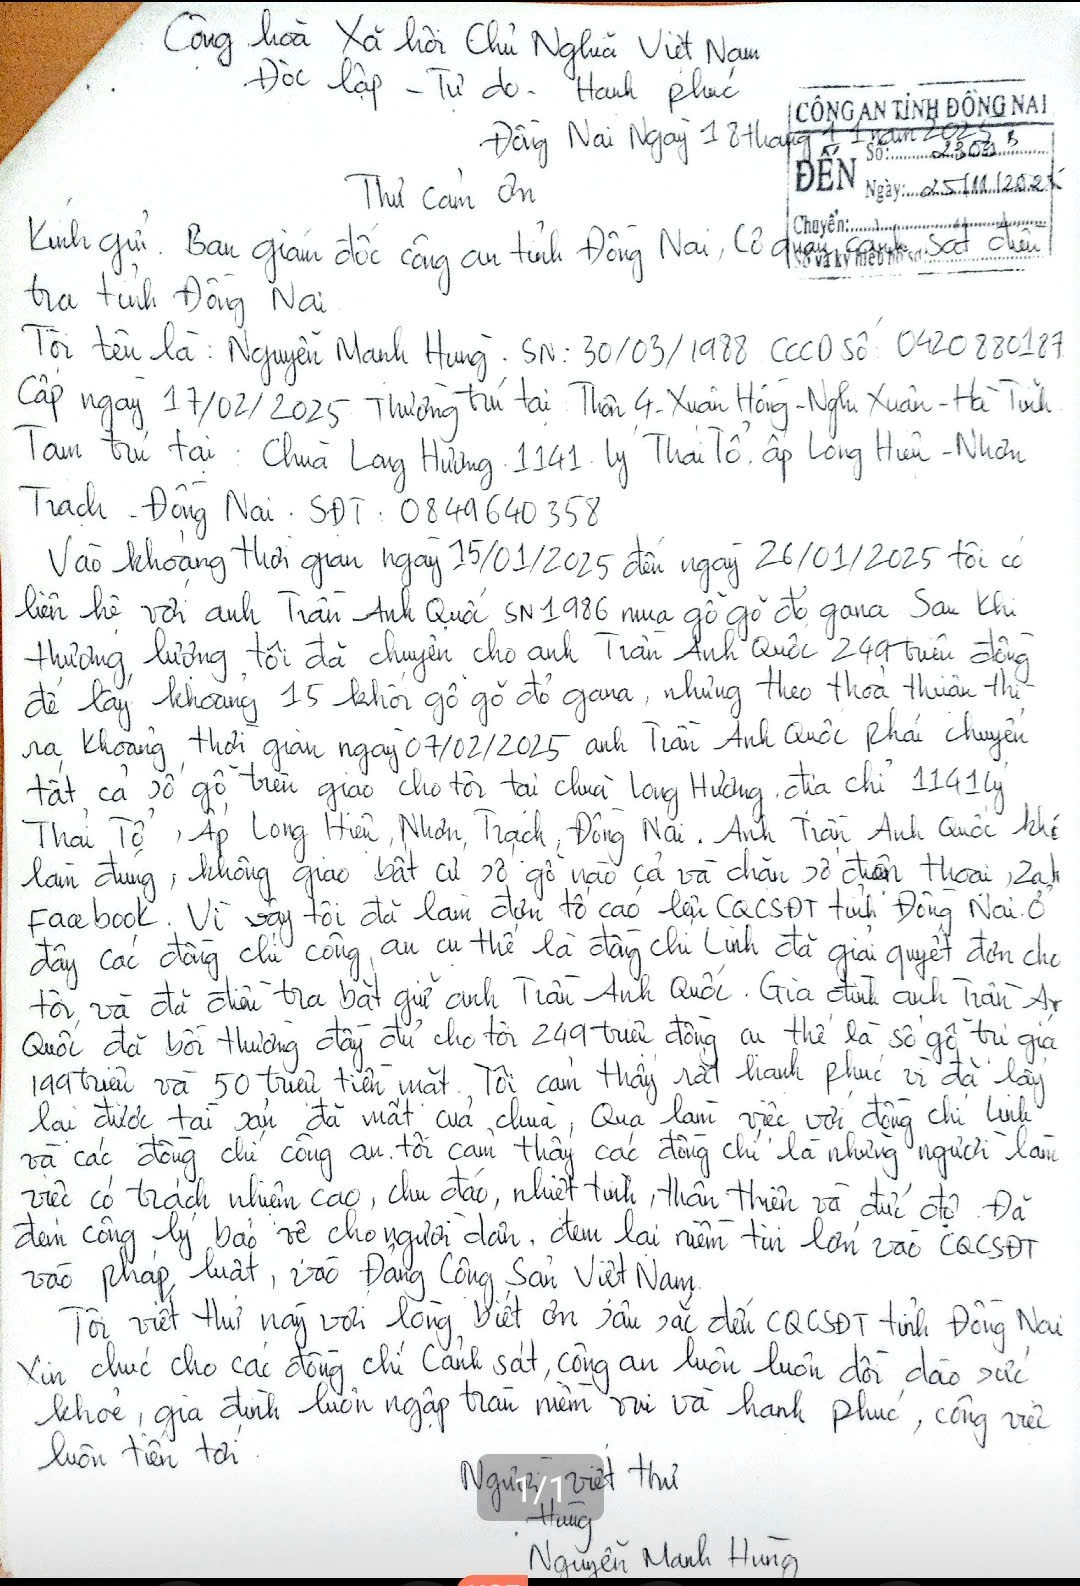 Cộng hoà Xã hội Chủ Nghĩa Việt Nam
Độc lập - Tự do - Hạnh phúc
Đồng Nai Ngày 18 tháng 11 năm 2025
CÔNG AN TỈNH ĐỒNG NAI
ĐẾN
Số:
Ngày: 25/11/2025
Chuyển:
Số và ký hiệu hồ sơ:
Thư cảm ơn
Kính gửi. Ban giám đốc công an tỉnh Đồng Nai, Cơ quan cảnh sát điều
tra tỉnh Đồng Nai
Tôi tên là: Nguyễn Mạnh Hùng. SN: 30/03/1988 CCCD số 0420880187
Cấp ngày 17/02/2025 Thường trú tại Thôn 4-Xuân Hồng-Nghi Xuân-Hà Tĩnh
Tạm trú tại: Chùa Long Hương. 1141. lý Thái Tổ. ấp Long Hiệu - Nhơn
Trạch - Đồng Nai. SĐT: 0849640358
Vào khoảng thời gian ngày 15/01/2025 đến ngày 26/01/2025 tôi có
liên hệ với anh Trần Anh Quốc SN 1986 mua gỗ gõ đỏ gana Sau khi
thương lượng tôi đã chuyển cho anh Trần Anh Quốc 249 triệu đồng
để lấy khoảng 15 khối gỗ gõ đỏ gana, nhưng theo thoả thuận thì
ra khoảng thời gian ngày 07/02/2025 anh Trần Anh Quốc phải chuyển
tất cả số gỗ trên giao cho tôi tại chùa Long Hương, địa chỉ 1141 lý
Thái Tổ, Ấp Long Hiệu, Nhơn Trạch, Đồng Nai. Anh Trần Anh Quốc khô
làm đúng, không giao bất cứ số gỗ nào cả và chặn số điện thoại, Zal
Facebook. Vì vậy tôi đã làm đơn tố cáo lên CQCSĐT tỉnh Đồng Nai. Ở
đây các đồng chí công an cụ thể là đồng chí Linh đã giải quyết đơn cho
tôi và đã điều tra bắt giữ anh Trần Anh Quốc. Gia đình anh Trần An
Quốc đã bồi thường đầy đủ cho tôi 249 triệu đồng cụ thể là số gỗ trị giá
199 triệu và 50 triệu tiền mặt. Tôi cảm thấy rất hạnh phúc vì đã lấy
lại được tài sản đã mất của chùa, Qua làm việc với đồng chí Linh
và các đồng chí công an. tôi cảm thấy các đồng chí là những người làm
việc có trách nhiệm cao, chu đáo, nhiệt tình, thân thiện và đức độ. Đã
đem công lý bảo vệ cho người dân, đem lại niềm tin lớn vào CQCSĐT
vào pháp luật, vào Đảng Cộng Sản Việt Nam.
Tôi viết thư này với lòng biết ơn sâu sắc đến CQCSĐT tỉnh Đồng Nai
Xin chúc cho các đồng chí Cảnh sát, công an luôn luôn dồi dào sức
khoẻ, gia đình luôn ngập tràn niềm vui và hạnh phúc, công việc
luôn tiến tới.
Người viết thư
1/1
Hùng
Nguyễn Mạnh Hùng